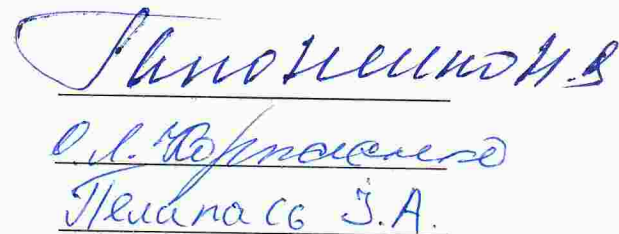 Гапоненко Н.В
О.Л. Корнаценко
Пелипась І.А.